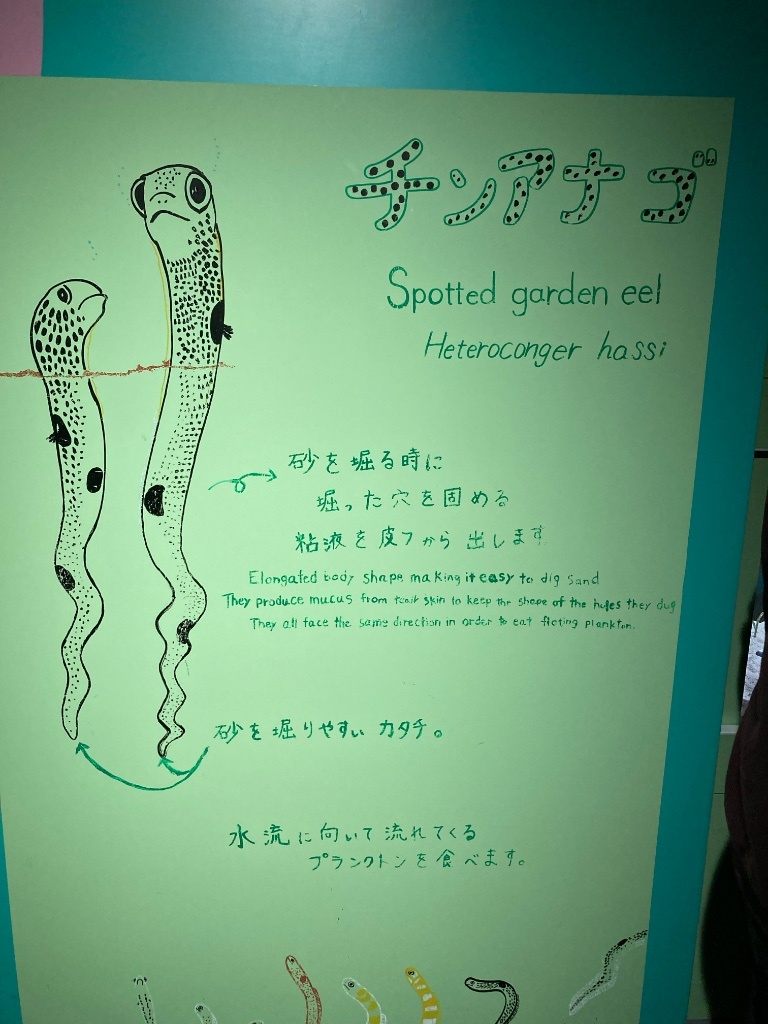 チンアナゴ
Spotted garden eel
Heteroconger hassi
砂を堀る時に
堀った穴を固める
粘液を皮フから出します
Elongated body shape making it easy to dig sand
They produce mucus from their skin to keep the shape of the holes they dug
They all face the same direction in order to eat floting plankton.
砂を堀りやすいカタチ。
水流に向いて流れてくる
プランクトンを食べます。